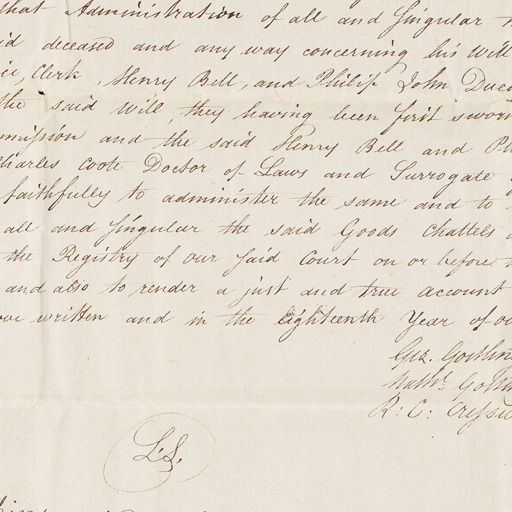 that Administration of all and singular
id deceased and any way concerning his Will
Clerk, Henry Bell, and Philip John Duca
the said Will, they having been first sworn
mmission and the said Henry Bell and Ph
Charles Coote Doctor of Laws and Surrogate
faithfully to administer the same and to
all and singular the said Goods Chattels
the Registry of our said Court on or before
and also to render a just and true account
ove written and in the Eighteenth Year of ou
Gostlin
Nathl. Gostlin
R: C: Cresswe
L.S.